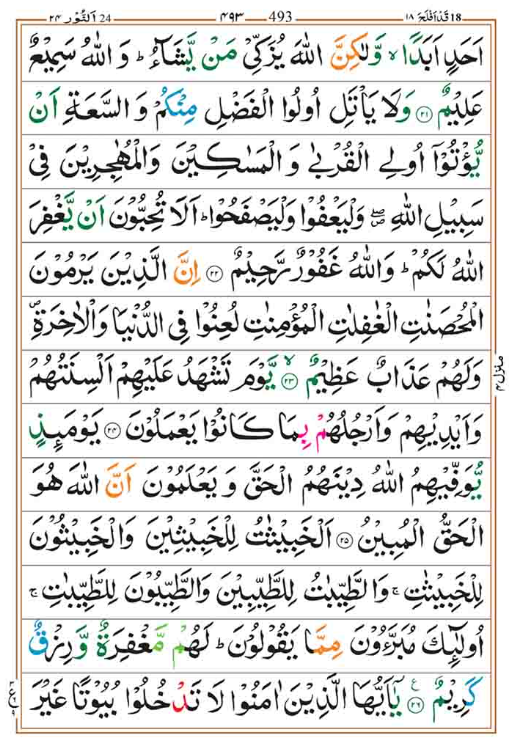 18 قَدْ اَفْلَحَ ١٨ 493 ۴۹۳ 24 اَلنُّوْر ٢۴
اَحَدٍ اَبَدًا ۙ وَّلٰكِنَّ اللّٰهَ يُزَكِّىْ مَنْ يَّشَآءُ ؕ وَاللّٰهُ سَمِيْعٌ
عَلِيْمٌ ﴿۲۱﴾ وَلَا يَاْتَلِ اُولُوا الْفَضْلِ مِنْكُمْ وَالسَّعَةِ اَنْ
يُّؤْتُوْۤا اُولِى الْقُرْبٰى وَالْمَسٰكِيْنَ وَالْمُهٰجِرِيْنَ فِىْ
سَبِيْلِ اللّٰهِ ۖ وَلْيَعْفُوْا وَلْيَصْفَحُوْا ؕ اَلَا تُحِبُّوْنَ اَنْ يَّغْفِرَ
اللّٰهُ لَكُمْ ؕ وَاللّٰهُ غَفُوْرٌ رَّحِيْمٌ ﴿۲۲﴾ اِنَّ الَّذِيْنَ يَرْمُوْنَ
الْمُحْصَنٰتِ الْغٰفِلٰتِ الْمُؤْمِنٰتِ لُعِنُوْا فِى الدُّنْيَا وَالْاٰخِرَةِ ۪
وَلَهُمْ عَذَابٌ عَظِيْمٌ ۙ﴿۲۳﴾ يَّوْمَ تَشْهَدُ عَلَيْهِمْ اَلْسِنَتُهُمْ
وَاَيْدِيْهِمْ وَاَرْجُلُهُمْ بِمَا كَانُوْا يَعْمَلُوْنَ ﴿۲۴﴾ يَوْمَئِذٍ
يُّوَفِّيْهِمُ اللّٰهُ دِيْنَهُمُ الْحَقَّ وَيَعْلَمُوْنَ اَنَّ اللّٰهَ هُوَ
الْحَقُّ الْمُبِيْنُ ﴿۲۵﴾ اَلْخَبِيْثٰتُ لِلْخَبِيْثِيْنَ وَالْخَبِيْثُوْنَ
لِلْخَبِيْثٰتِ ۚ وَالطَّيِّبٰتُ لِلطَّيِّبِيْنَ وَالطَّيِّبُوْنَ لِلطَّيِّبٰتِ ۚ
اُولٰٓئِكَ مُبَرَّءُوْنَ مِمَّا يَقُوْلُوْنَ ؕ لَهُمْ مَّغْفِرَةٌ وَّرِزْقٌ
كَرِيْمٌ ﴿۲۶﴾ يٰۤاَيُّهَا الَّذِيْنَ اٰمَنُوْا لَا تَدْخُلُوْا بُيُوْتًا غَيْرَ
منزل ۴